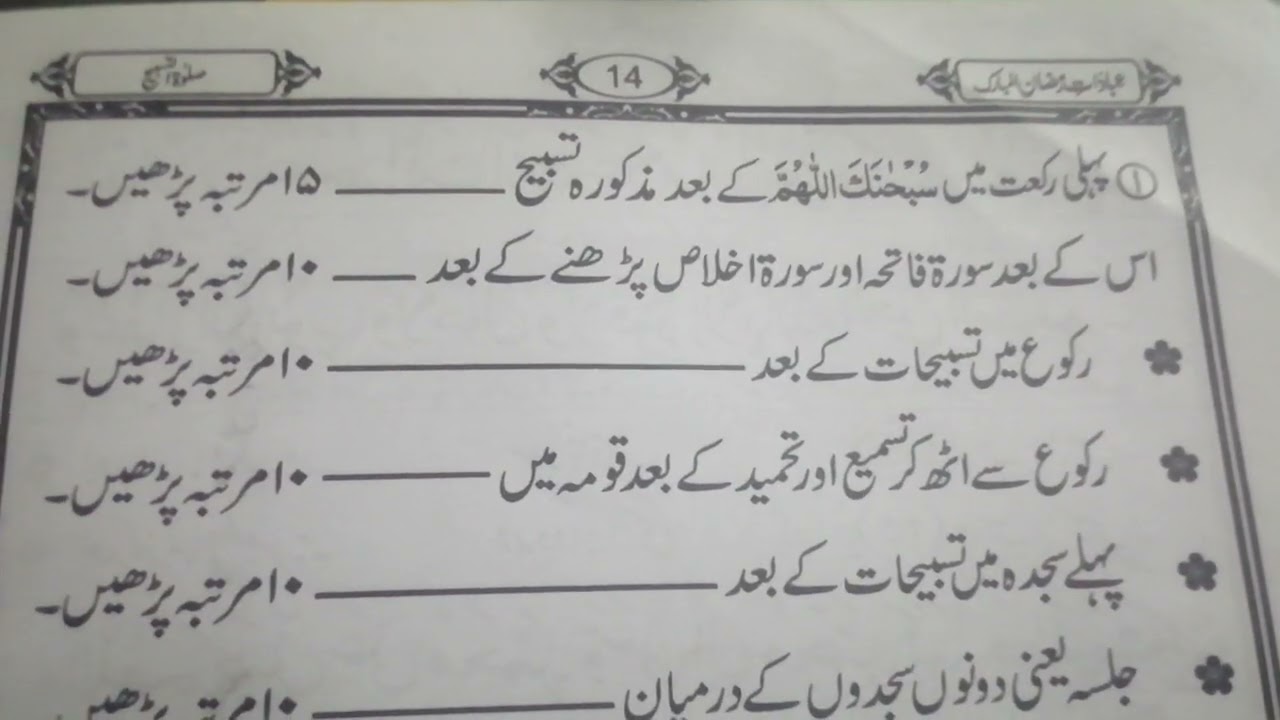 عبادات رمضان المبارک
14
صلوٰۃ التسبیح
① پہلی رکعت میں سُبْحٰنَکَ اللّٰهُمَّ کے بعد مذکورہ تسبیح ــــــــ ۱۵ مرتبہ پڑھیں۔
اس کے بعد سورۃ فاتحہ اور سورۃ اخلاص پڑھنے کے بعد ــــــــ ۱۰ مرتبہ پڑھیں۔
رکوع میں تسبیحات کے بعد ــــــــ ۱۰ مرتبہ پڑھیں۔
رکوع سے اٹھ کر تسمیع اور تحمید کے بعد قومہ میں ــــــــ ۱۰ مرتبہ پڑھیں۔
پہلے سجدہ میں تسبیحات کے بعد ــــــــ ۱۰ مرتبہ پڑھیں۔
جلسہ یعنی دونوں سجدوں کے درمیان ــــــــ ۱۰ مرتبہ پڑھیں